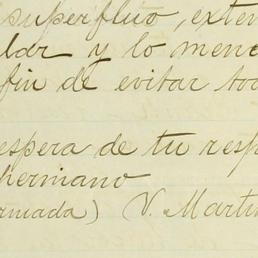 superfluo, exte
lar y lo meno
fin de evitar to
espera de tu resp
hermano
rmada) V. Martin